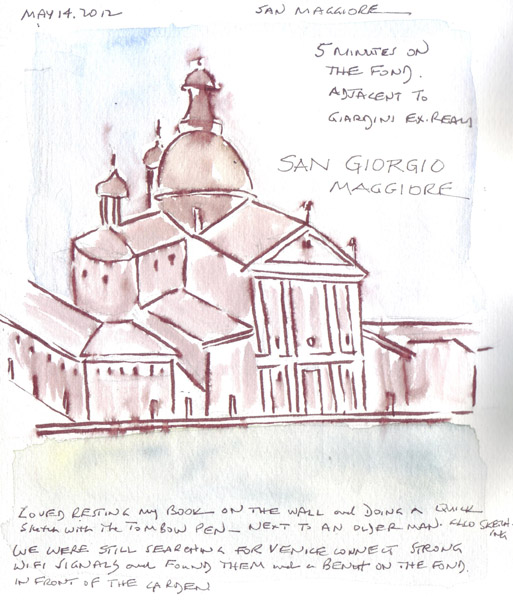 MAY 14. 2012
SAN MAGGIORE
5 MINUTES ON
THE FOND.
ADJACENT TO
GIARDINI EX.REALI
SAN GIORGIO
MAGGIORE
LOVED RESTING my BOOK ON THE WALL and DOING A QUICK
Sketch with the TOMBOW PEN - NEXT TO AN OLDER MAN. ALSO SKETCH
ING
WE WERE STILL SEARCHING FOR VENICE CONNECT STRONG
WIFI SIGNALS and FOUND THEM and a BENCH ON THE FOND.
IN FRONT OF THE GARDEN